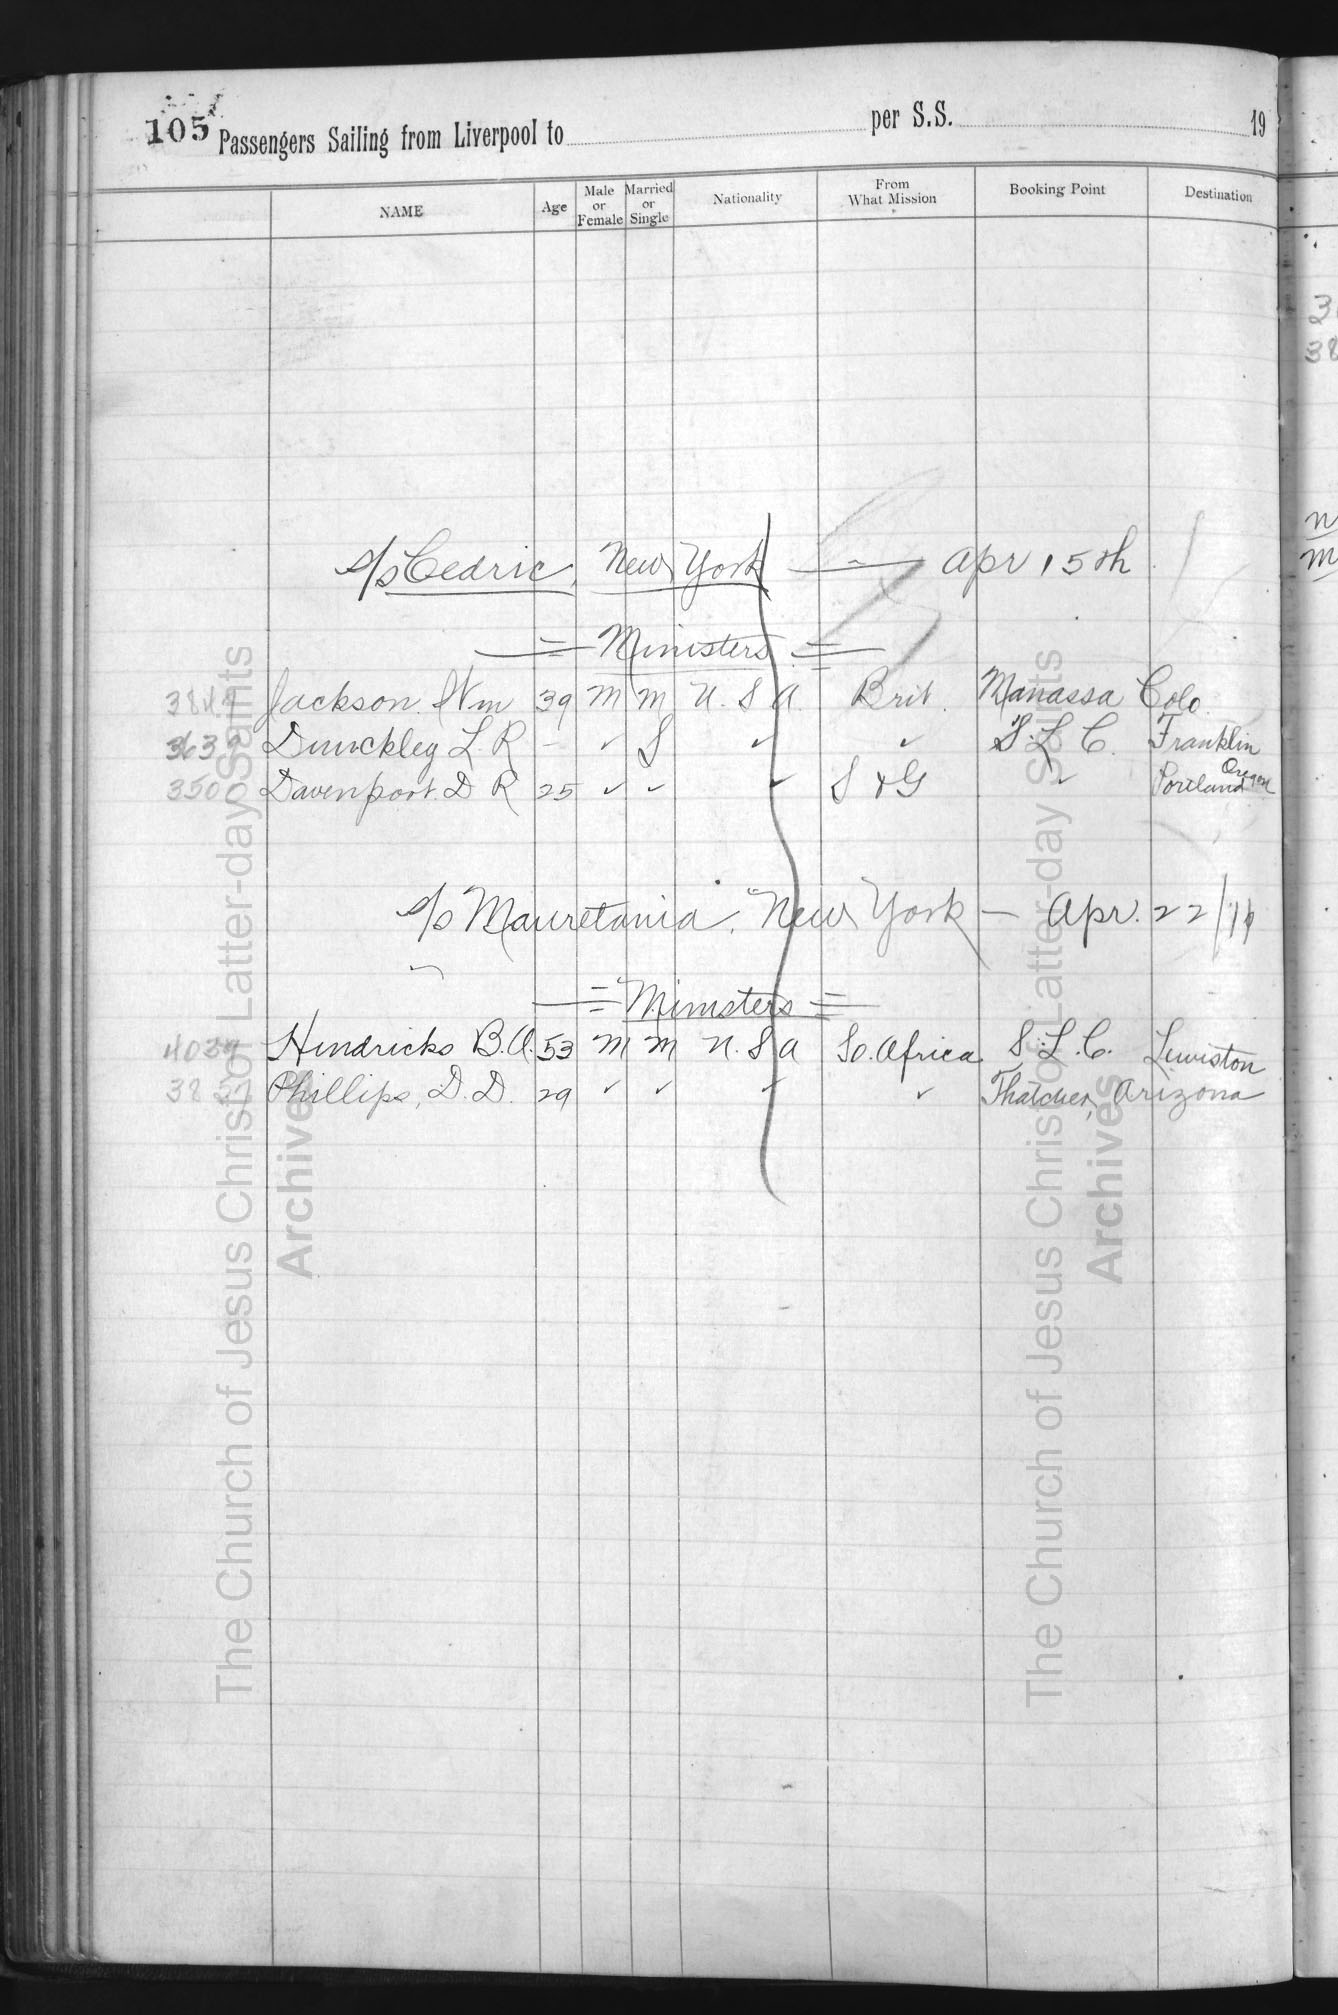 105 Passengers Sailing from Liverpool to per S.S. 19
NAME Age Male or Female Married or Single Nationality From What Mission Booking Point Destination
s/s Cedric, New York — Apr 15th
= Ministers =
Jackson Wm 39 M M U. S A. Brit. Manassa Colo.
3639 Dunckley L. R - ✓ S ✓ ✓ S. L C. Franklin
3500 Davenport. D R 25 ✓ ✓ ✓ S & G ✓ Portland Oregon
s/s Mauretania, New York — Apr. 22/11
= Ministers =
Hendricks B. A. 53 M M U. S A So. Africa S. L. C. Lewiston
Phillips, D. D. 29 ✓ ✓ ✓ ✓ Thatcher, Arizona
The Church of Jesus Christ of Latter-day Saints
Archives
The Church of Jesus Christ of Latter-day Saints
Archives